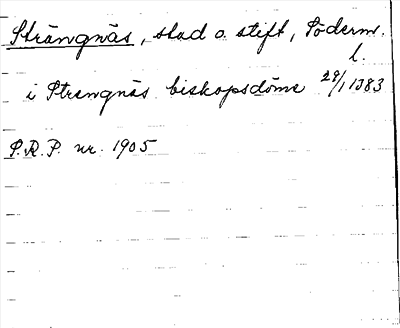 Strängnäs, stad o. stift, Söderm.
l.
i Strengnäs biskopsdöme 29/1 1383
S.R.P. nr. 1905